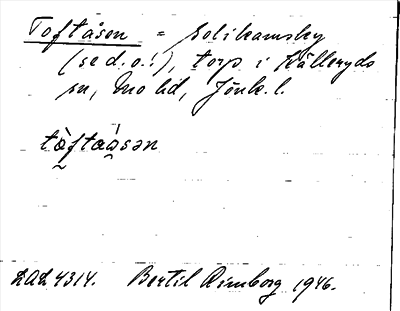 Toftåsen = Solikamsky
(se d. o.!), torp i Källeryds
sn, Mo hd, Jönk. l.
tɷ̀ftaɷ́sən
LAL 4314. Bertil Rimborg 1946.